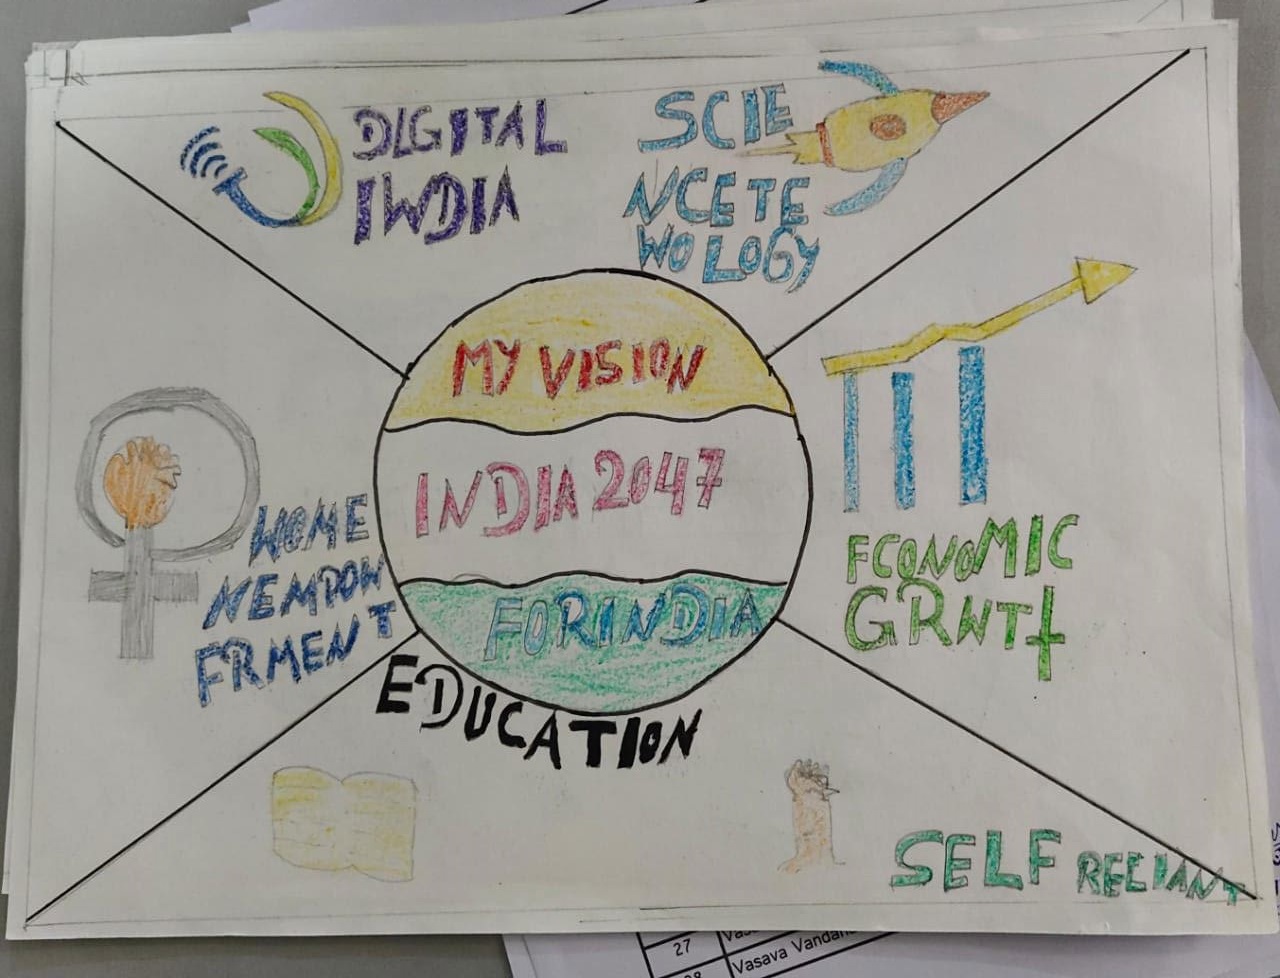 DIGITAL
IWDIA
SCIE
NCETE
WOLOGY
MY VISION
INDIA 2047
FORINDIA
WOME
NEMPOW
FRMENT
FCONOMIC
GRWTH
EDUCATION
SELF RELIANT
27
Vasava Vandana